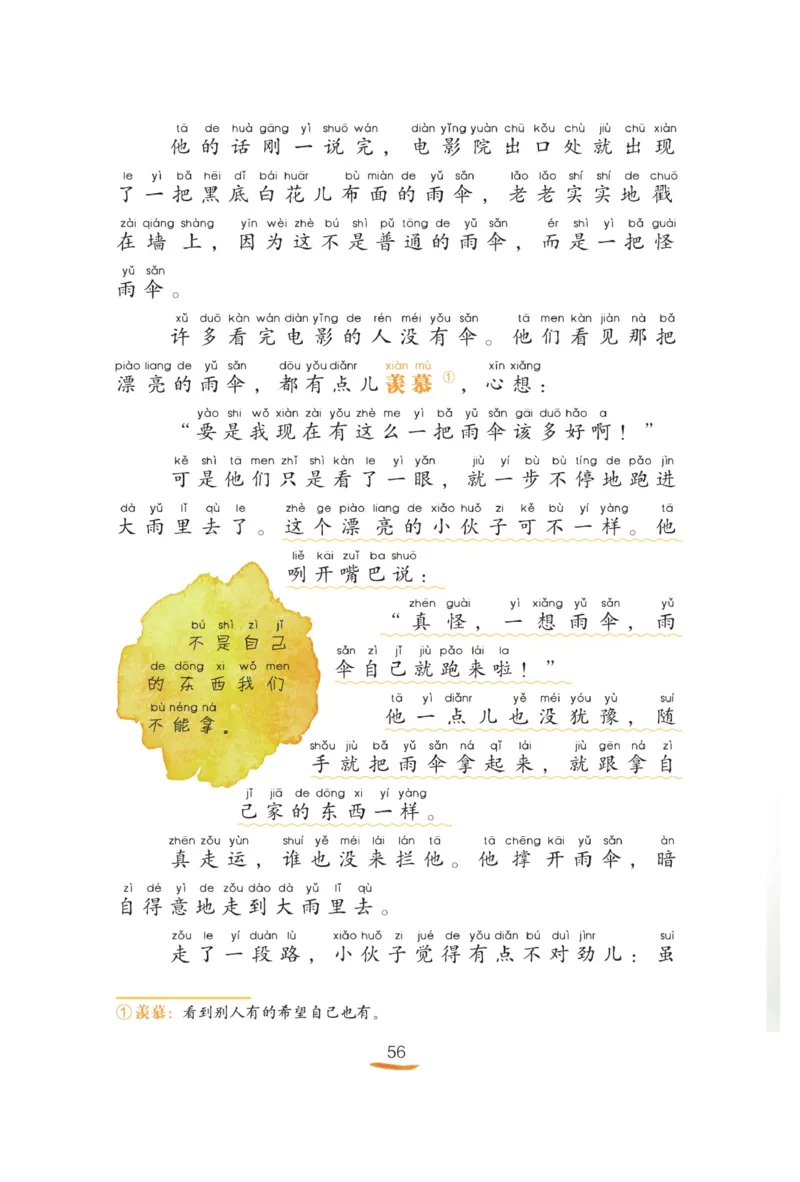 tā de huà gāng yì shuō wán diàn yǐng yuàn chū kǒu chù jiù chū xiàn
他的话刚一说完，电影院出口处就出现
le yì bǎ hēi dǐ bái huār bù miàn de yǔ sǎn lǎo lǎo shí shí de chuō
了一把黑底白花儿布面的雨伞，老老实实地戳
zài qiáng shàng yīn wèi zhè bú shì pǔ tōng de yǔ sǎn ér shì yì bǎ guài
在墙上，因为这不是普通的雨伞，而是一把怪
yǔ sǎn
雨伞。
xǔ duō kàn wán diàn yǐng de rén méi yǒu sǎn tā men kàn jiàn nà bǎ
许多看完电影的人没有伞。他们看见那把
piào liang de yǔ sǎn dōu yǒu diǎnr xiàn mù xīn xiǎng
漂亮的雨伞，都有点儿羡慕①，心想：
yào shi wǒ xiàn zài yǒu zhè me yì bǎ yǔ sǎn gāi duō hǎo a
“要是我现在有这么一把雨伞该多好啊！”
kě shì tā men zhǐ shì kàn le yì yǎn jiù yí bù bù tíng de pǎo jìn
可是他们只是看了一眼，就一步不停地跑进
dà yǔ lǐ qù le zhè ge piào liang de xiǎo huǒ zi kě bù yí yàng tā
大雨里去了。这个漂亮的小伙子可不一样。他
liě kāi zuǐ ba shuō
咧开嘴巴说：
zhēn guài yì xiǎng yǔ sǎn yǔ
“真怪，一想雨伞，雨
sǎn zì jǐ jiù pǎo lái la
伞自己就跑来啦！”
tā yì diǎnr yě méi yóu yù suí
他一点儿也没犹豫，随
shǒu jiù bǎ yǔ sǎn ná qǐ lái jiù gēn ná zì
手就把雨伞拿起来，就跟拿自
jǐ jiā de dōng xi yí yàng
己家的东西一样。
bú shì zì jǐ
不是自己
de dōng xi wǒ men
的东西我们
bù néng ná
不能拿。
zhēn zǒu yùn shuí yě méi lái lán tā tā chēng kāi yǔ sǎn àn
真走运，谁也没来拦他。他撑开雨伞，暗
zì dé yì de zǒu dào dà yǔ lǐ qù
自得意地走到大雨里去。
zǒu le yí duàn lù xiǎo huǒ zi jué de yǒu diǎn bú duì jìnr suī
走了一段路，小伙子觉得有点不对劲儿：虽
①羡慕：看到别人有的希望自己也有。
56